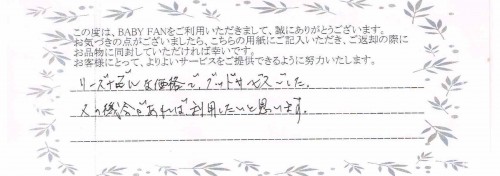 この度は、BABY FANをご利用いただきまして、誠にありがとうございます。
お気づきの点がございましたら、こちらの用紙にご記入いただき、ご返却の際に
お品物に同封していただければ幸いです。
お客様にとって、よりよいサービスをご提供できるように努力いたします。
リーズナブルな価格で、グッドサービスでした。
又の機会があれば利用したいと思います。